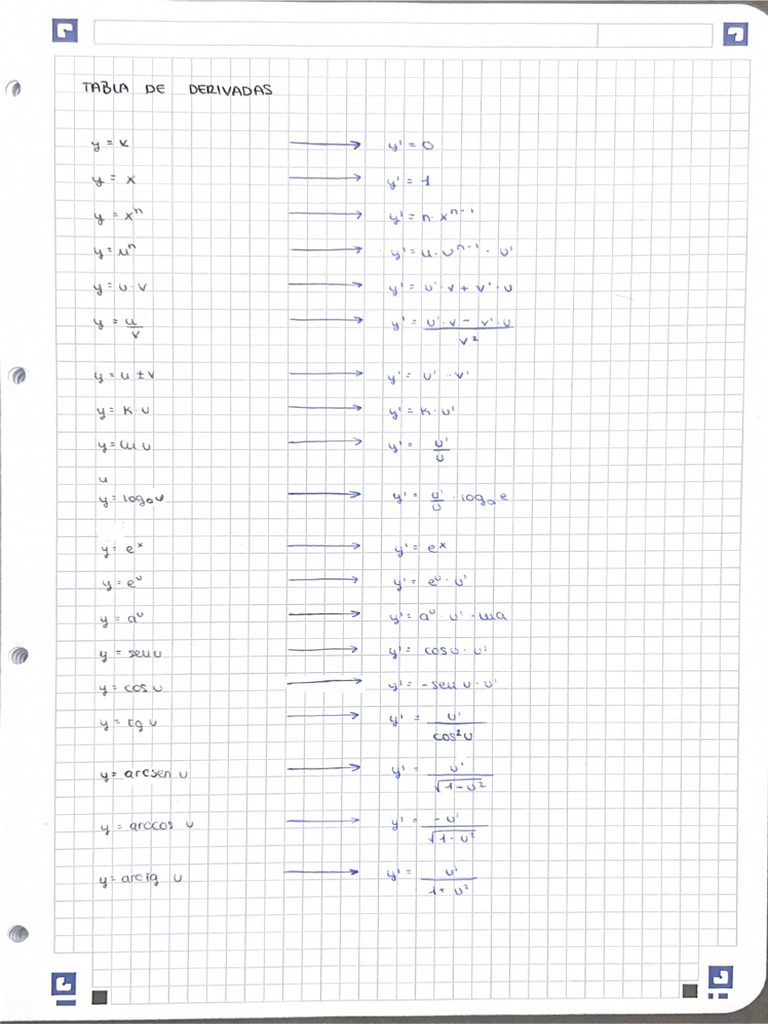 TABLA DE DERIVADAS
y = k → y' = 0
y = x → y' = 1
y = xⁿ → y' = n · xⁿ⁻¹
y = uⁿ → y' = u · uⁿ⁻¹ · u'
y = u · v → y' = u' · v + v' · u
y = u/v → y' = (u' · v - v' · u)/v²
y = u ± v → y' = u' · v'
y = k · u → y' = k · u'
y = ln u → y' = u'/u
u
y = logₐu → y' = u'/u · logₐe
y = eˣ → y' = eˣ
y = eᵘ → y' = eᵘ · u'
y = aᵘ → y' = aᵘ · u' · ln a
y = sen u → y' = cos u · u'
y = cos u → y' = -sen u · u'
y = tg u → y' = u'/cos²u
y = arcsen u → y' = u'/√(1-u²)
y = arccos u → y' = -u'/√(1-u²)
y = arctg u → y' = u'/(1+u²)